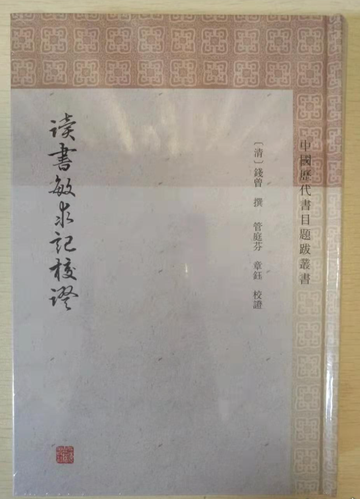 中國歷代書目題跋叢書
〔清〕錢曾 撰 管庭芬 章鈺 校證
读書敏求記校證